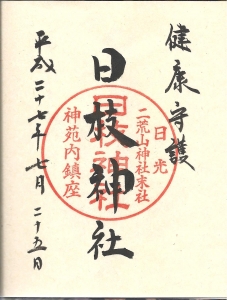 健康守護
日光
二荒山神社末社
日枝神社
日枝神社
神苑内鎮座
平成二十七年七月二十五日